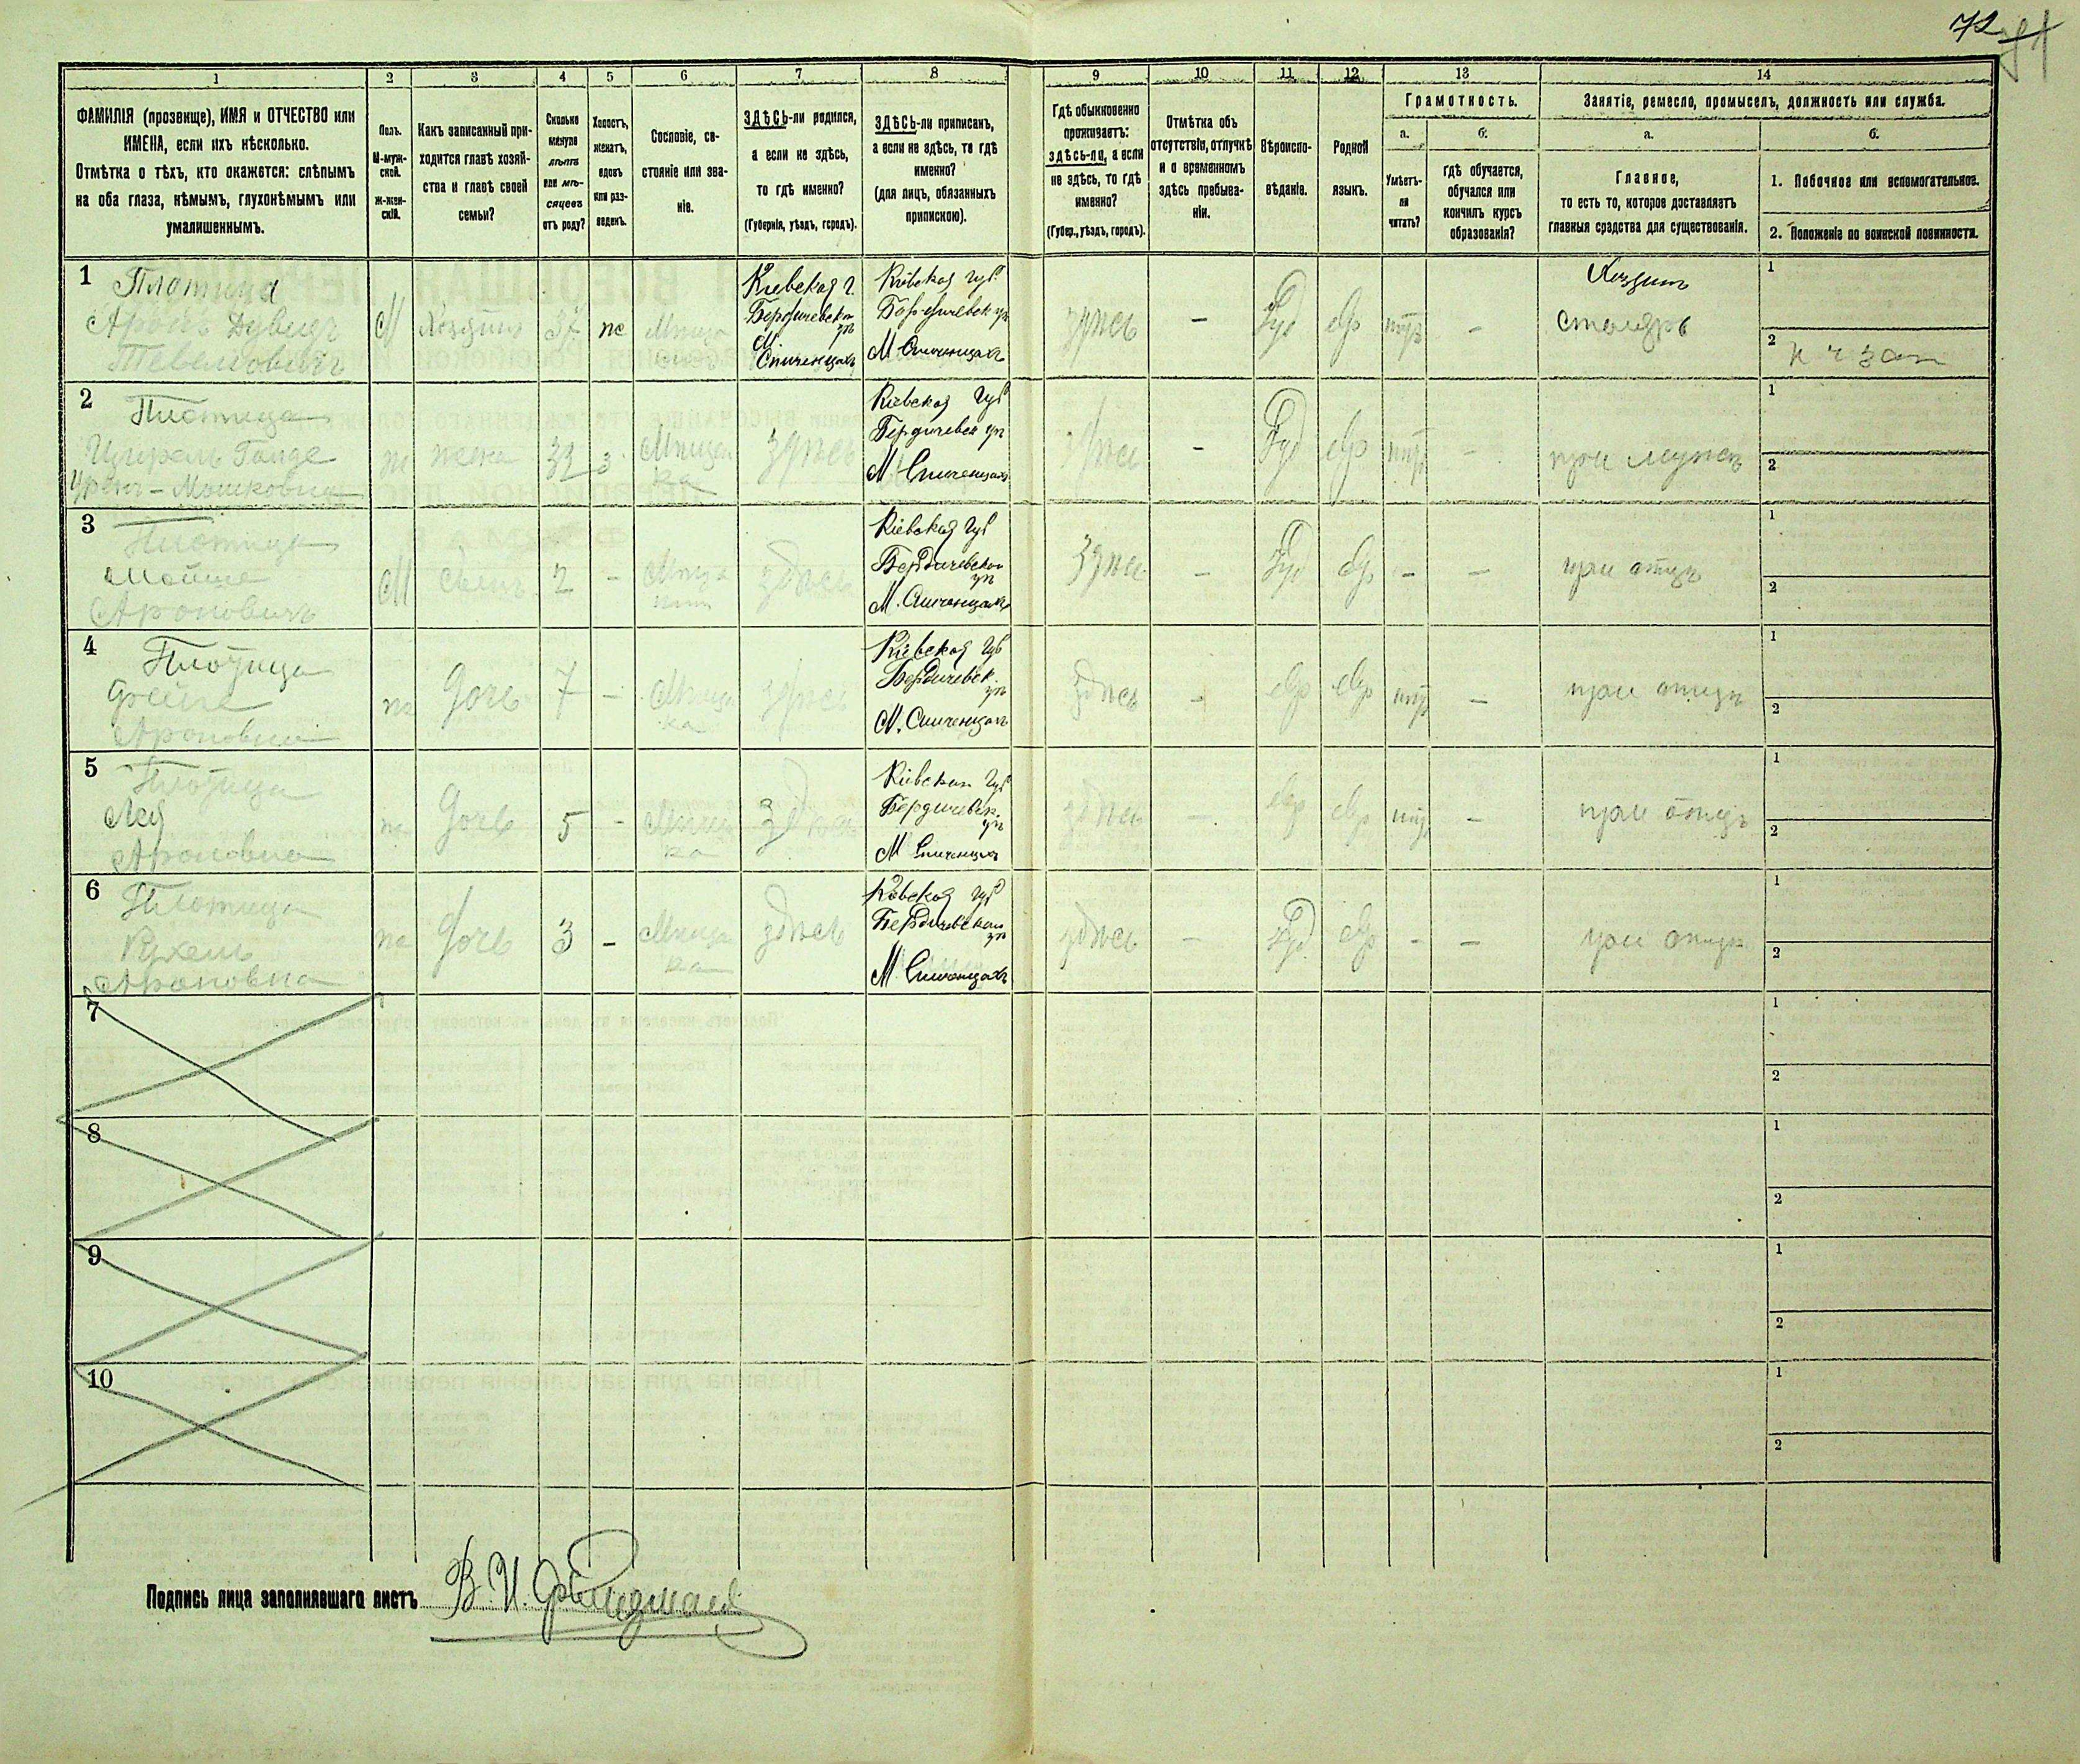 72
71
1
2
3
4
5
6
7
8
9
10
11
12
13
14
ФАМИЛІЯ (прозвище), ИМЯ и ОТЧЕСТВО или
ИМЕНА, если ихъ нѣсколько.
Отмѣтка о тѣхъ, кто окажется: слѣпымъ
на оба глаза, нѣмымъ, глухонѣмымъ или
умалишеннымъ.
Полъ.
М-муж-
ской.
Ж-жен-
скій.
Какъ записанный при-
ходится главѣ хозяй-
ства и главѣ своей
семьи?
Сколько
минуло
лѣтъ
или мѣ-
сяцевъ
отъ роду?
Холостъ,
женатъ,
вдовъ
или раз-
веденъ.
Сословіе, со-
стояніе или зва-
ніе.
ЗДѢСЬ-ли родился,
а если не здѣсь,
то гдѣ именно?
(Губернія, уѣздъ, городъ).
ЗДѢСЬ-ли приписанъ,
а если не здѣсь, то гдѣ
именно?
(для лицъ, обязанныхъ
припискою).
Гдѣ обыкновенно
проживаетъ:
здѣсь-ли, а если
не здѣсь, то гдѣ
именно?
(Губер., уѣздъ, городъ).
Отмѣтка объ
отсутствіи, отлучкѣ
и о временномъ
здѣсь пребыва-
ніи.
Вѣроиспо-
вѣданіе.
Родной
языкъ.
Грамотность.
а.
б.
Умѣетъ-
ли
читать?
гдѣ обучается,
обучался или
кончилъ курсъ
образованія?
Занятіе, ремесло, промыселъ, должность или служба.
а.
б.
Главное,
то есть то, которое доставляетъ
главныя средства для существованія.
1. Побочное или вспомогательное.
2. Положеніе по воинской повинности.
1
Плотица
Аронъ Дувидъ
Тевелювичъ
М
Хозяинъ
37
же
Кіевская г.
Бердичевск
уѣ
М
Спиченцахъ
Кіевская Губ
Бердичевск уѣ
М Спиченцахъ
здѣсь
-
Іуд
Евр
-
Хозяинъ
столяръ
1
2
2
Плотица
Мошковна
ж
жена
32
з
Мѣщан
ка
здѣсь
Кіевская Губ
Бердичевск уѣ
М Спиченцахъ
здѣсь
-
Іуд
Евр
-
при мужѣ
1
2
3
Плотица
Мойше
Ароновичъ
М
сынъ
2
-
здѣсь
Кіевская Губ
Бердичевскаи
уѣ
М. Спиченцахъ
здѣсь
-
Іуд
Евр
-
-
при отцѣ
1
2
4
Плотица
Фейге
Ароновна
ж
дочь
7
-
Мѣщан
ка
здѣсь
Кіевская Губ
Бердичевск.
уѣ
М. Спиченцахъ
здѣсь
-
Евр
Евр
-
при отцѣ
1
2
5
Плотица
Лея
Ароновна
ж
дочь
5
-
Мѣщан
ка
здѣсь
Кіевская Губ
Бердичевск.
уѣ
М Спиченцахъ
здѣсь
-
Евр
Евр
-
при отцѣ
1
2
6
Плотица
Рухель
Ароновна
ж
дочь
3
-
Мѣщан
ка
здѣсь
Кіевская Губ
Бердичевскаи
уѣ
М Спиченцахъ
здѣсь
-
Іуд
Евр
-
-
при отцѣ
1
2
7
1
2
8
1
2
9
1
2
10
1
2
Подпись лица заполнявшаго листъ В. И. Фридман